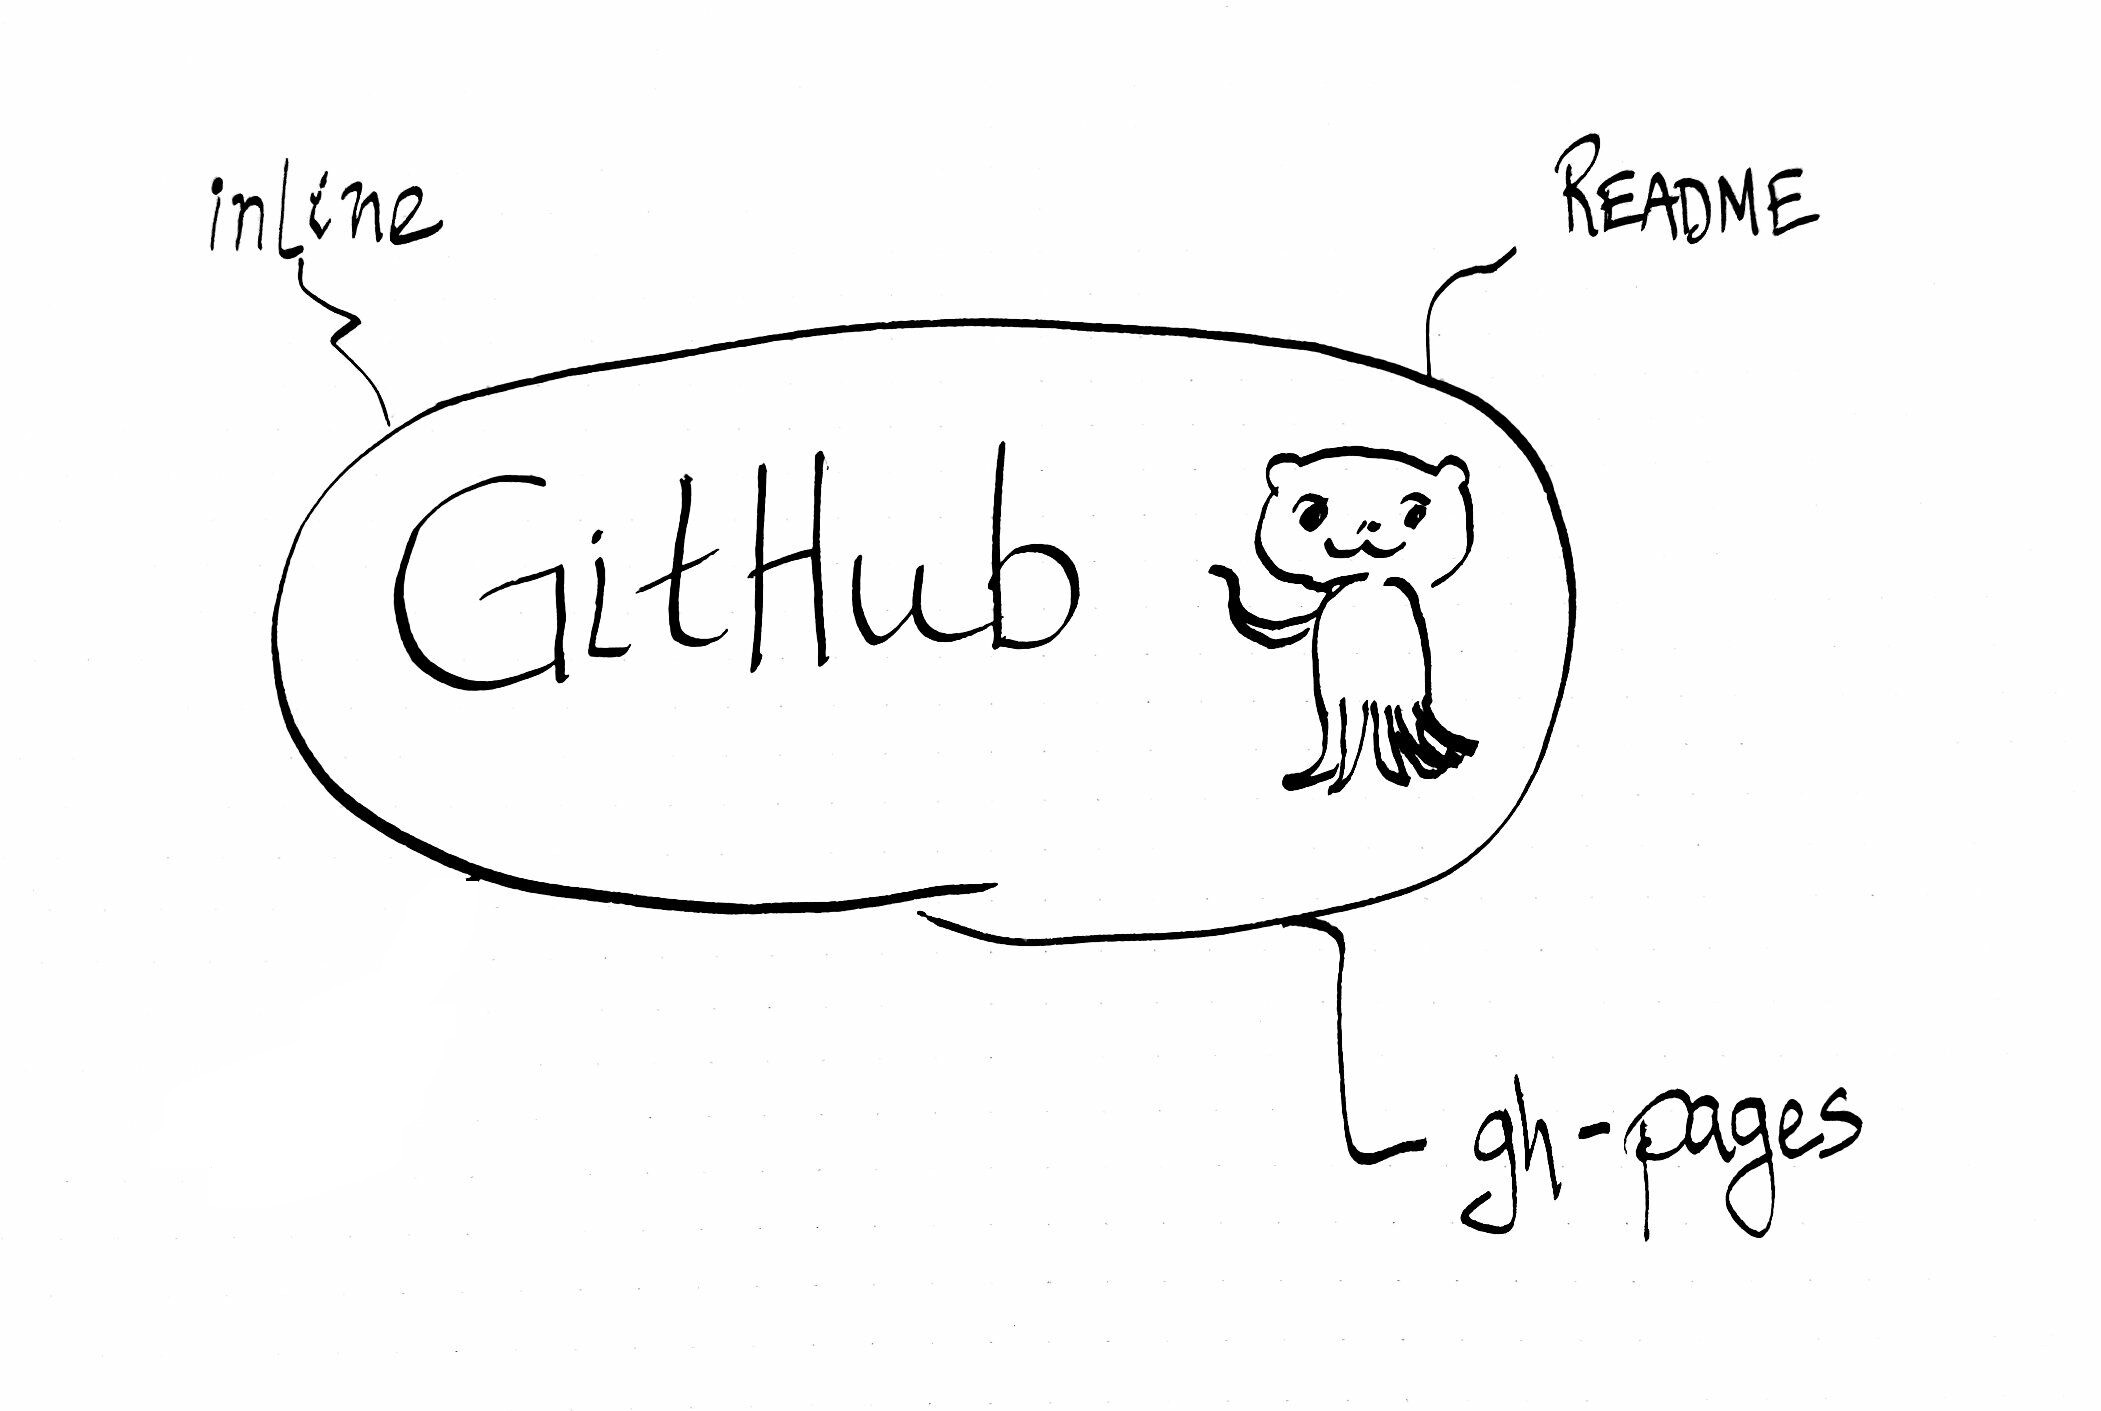 inline
README
GitHub
gh-pages